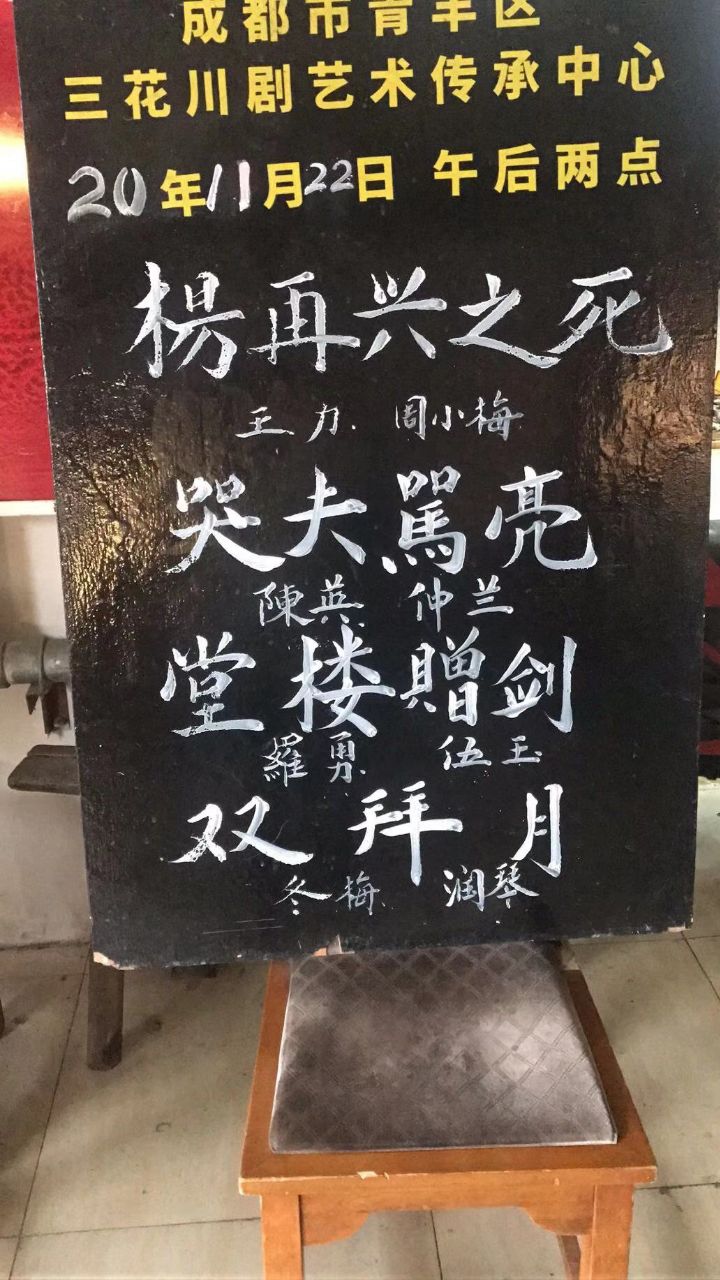 成都市青羊区
三花川剧艺术传承中心
20年11月22日 午后两点
楊再兴之死
王力 周小梅
哭夫駡亮
陳英 仲兰
堂楼贈剑
羅勇 伍玉
双拜月
冬梅 润琴